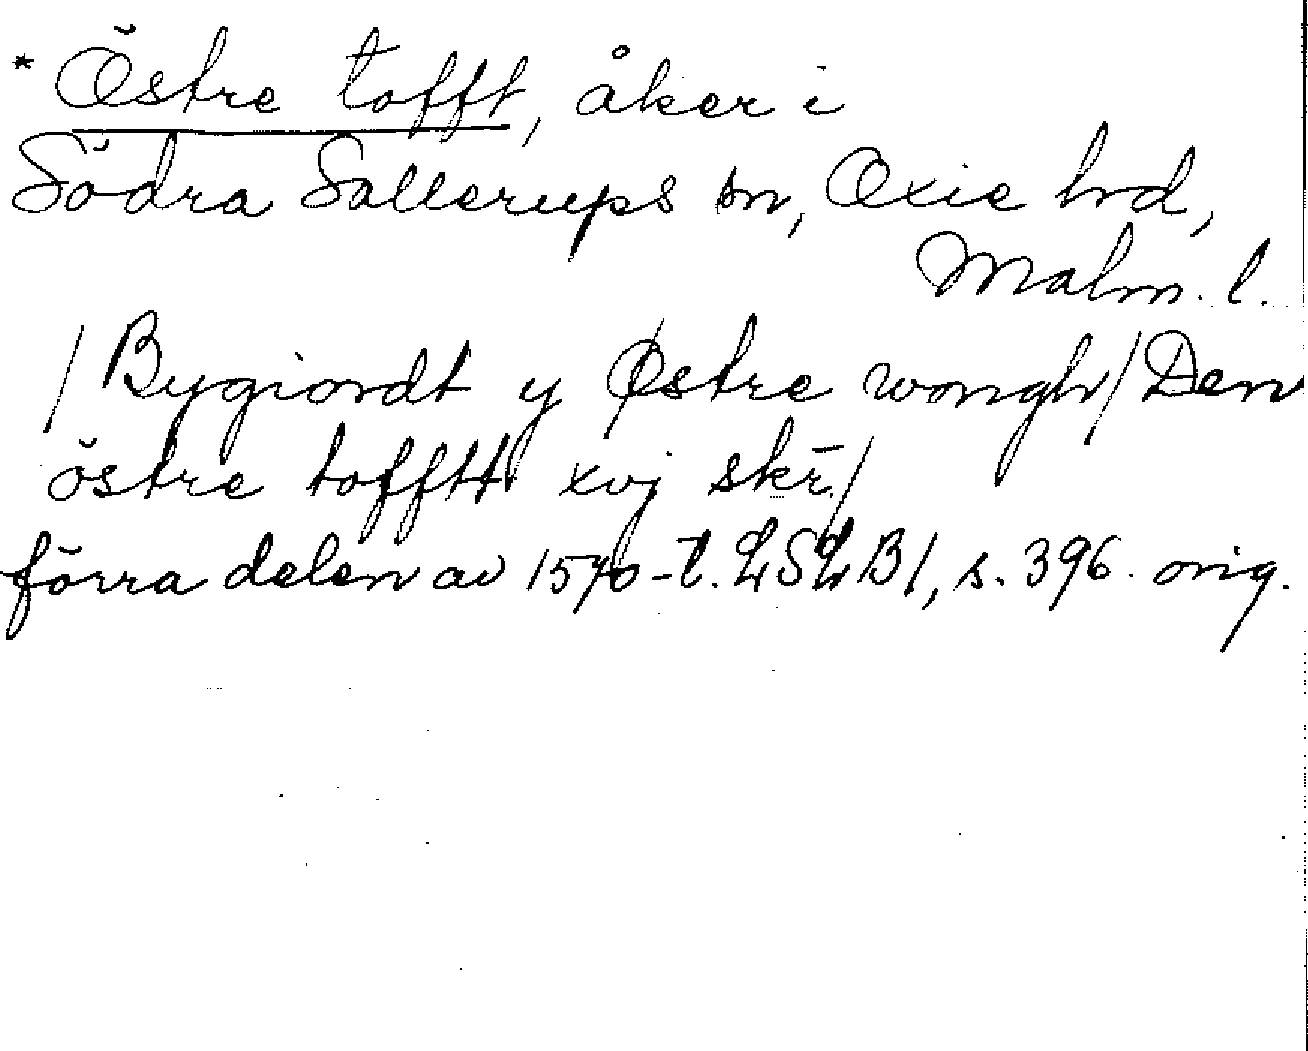 * Östre tofft, åker i
Södra Sallerups sn, Oxie hd,
Malm. l.
/Bygiordt y Østre wongh/Den
östre tofftt xvj skr̄/
förra delen av 1570-t. LSLB1, s. 396. orig.